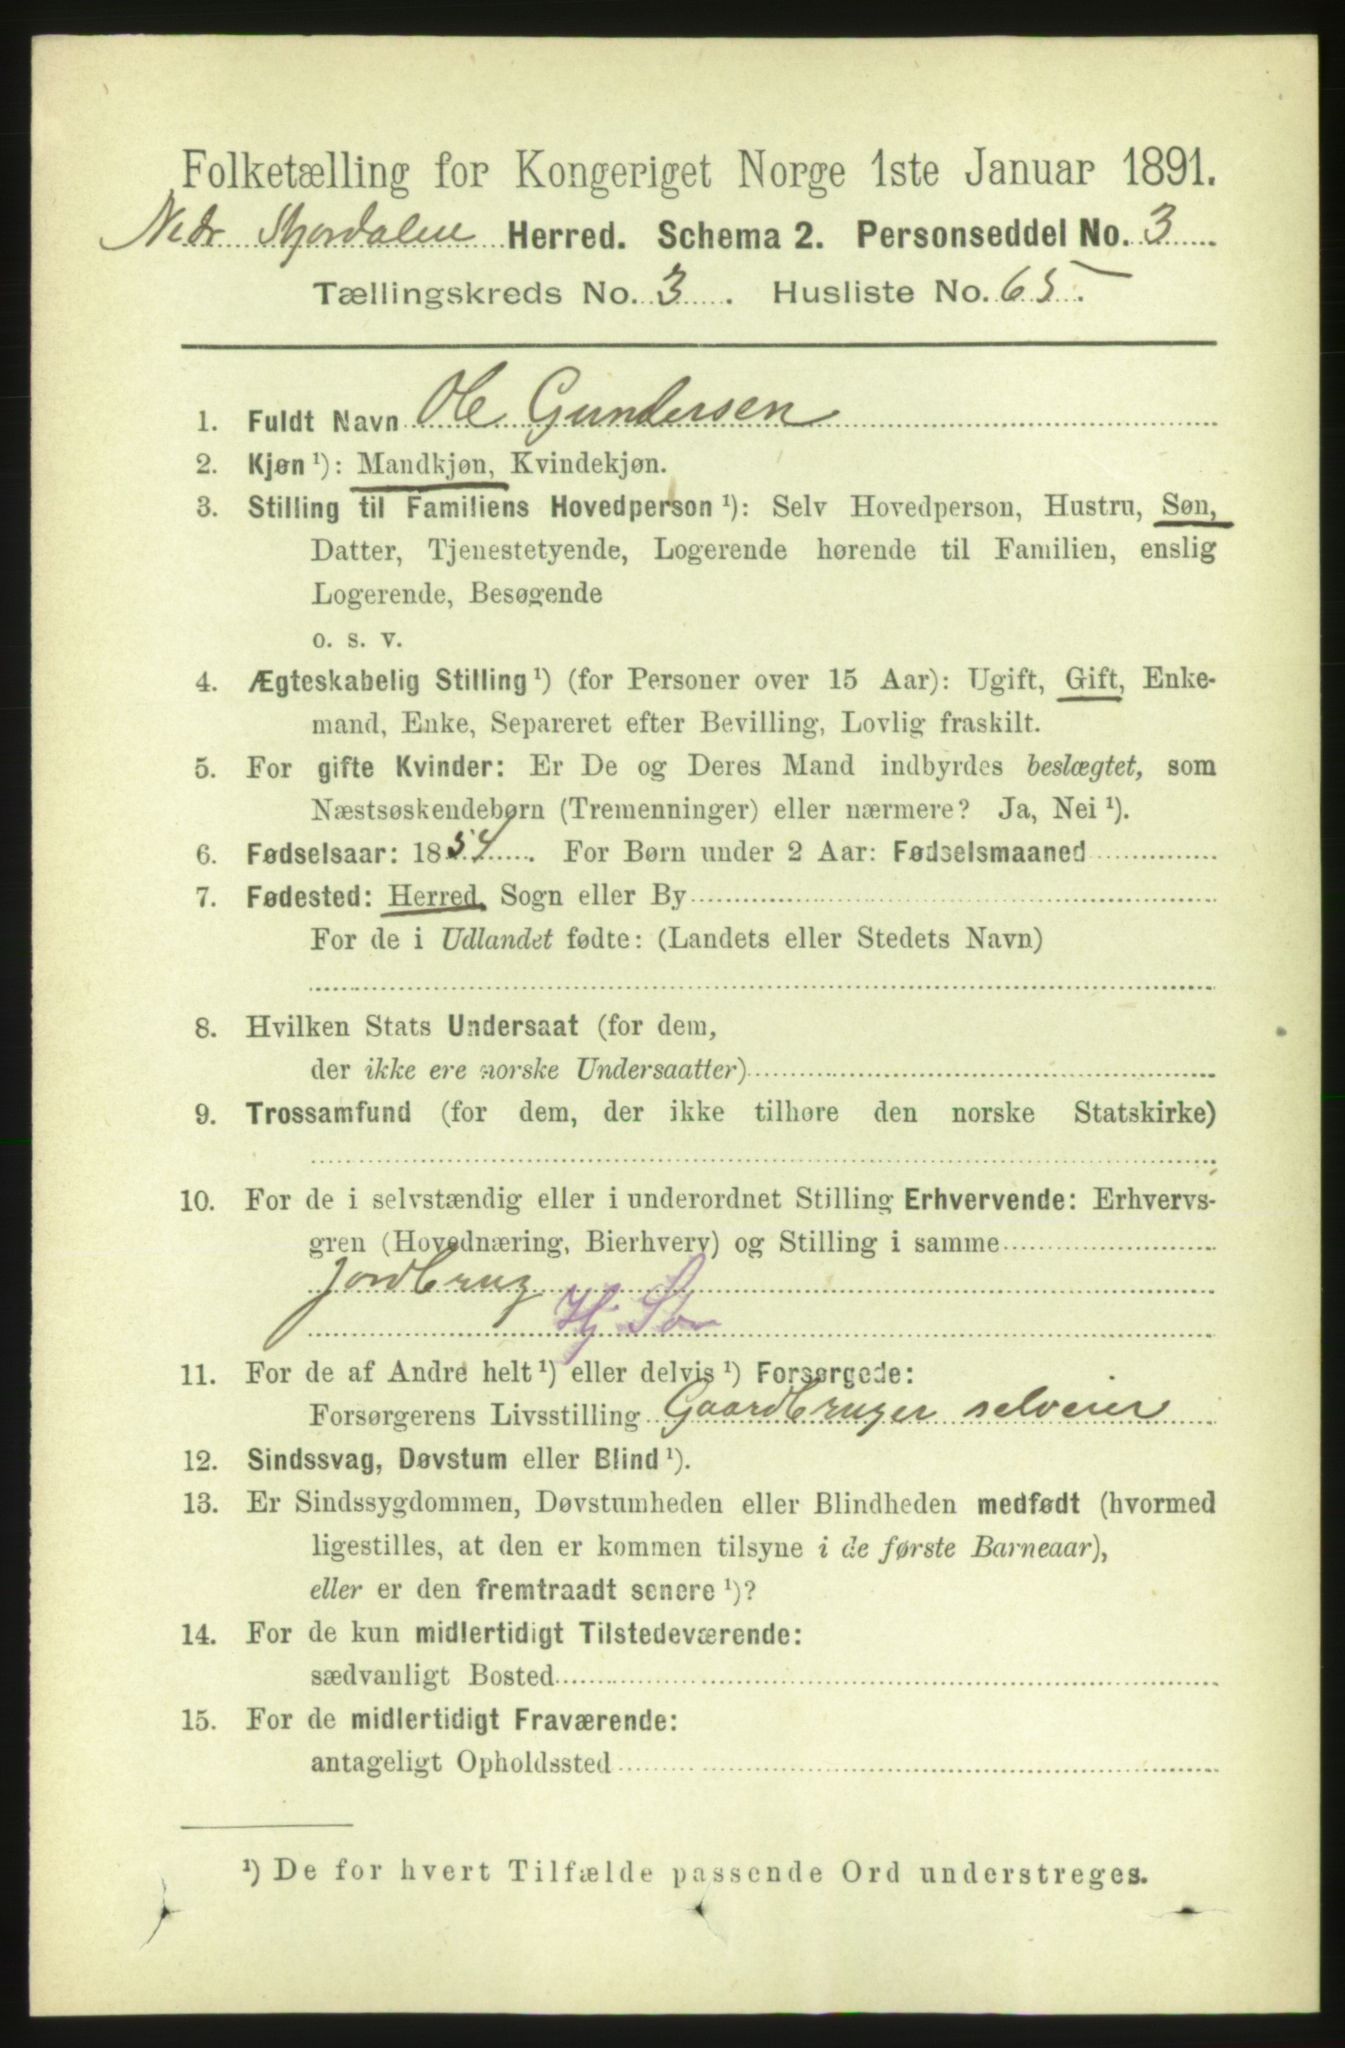 Folketælling for Kongeriget Norge 1ste Januar 1891.
Nedr Stjordalen Herred. Schema 2. Personseddel No. 3
Tællingskreds No. 3. Husliste No. 65.
1. Fuldt Navn Ole Gundersen
2. Kjøn ¹): Mandkjøn, Kvindekjøn.
3. Stilling til Familiens Hovedperson ¹): Selv Hovedperson, Hustru, Søn,
Datter, Tjenestetyende, Logerende hørende til Familien, enslig
Logerende, Besøgende
o. s. v.
4. Ægteskabelig Stilling ¹) (for Personer over 15 Aar): Ugift, Gift, Enke-
mand, Enke, Separeret efter Bevilling, Lovlig fraskilt.
5. For gifte Kvinder: Er De og Deres Mand indbyrdes beslægtet, som
Næstsøskendebørn (Tremenninger) eller nærmere? Ja, Nei ¹).
6. Fødselsaar: 1854. For Børn under 2 Aar: Fødselsmaaned
7. Fødested: Herred, Sogn eller By
For de i Udlandet fødte: (Landets eller Stedets Navn)
8. Hvilken Stats Undersaat (for dem,
der ikke ere norske Undersaatter)
9. Trossamfund (for dem, der ikke tilhøre den norske Statskirke)
10. For de i selvstændig eller i underordnet Stilling Erhvervende: Erhvervs-
gren (Hovednæring, Bierhverv) og Stilling i samme
Jordbrug
Hj Søn
11. For de af Andre helt ¹) eller delvis ¹) Forsørgede:
Forsørgerens Livsstilling Gaardbruger selveier
12. Sindssvag, Døvstum eller Blind ¹).
13. Er Sindssygdommen, Døvstumheden eller Blindheden medfødt (hvormed
ligestilles, at den er kommen tilsyne i de første Barneaar),
eller er den fremtraadt senere ¹)?
14. For de kun midlertidigt Tilstedeværende:
sædvanligt Bosted
15. For de midlertidigt Fraværende:
antageligt Opholdssted
¹) De for hvert Tilfælde passende Ord understreges.